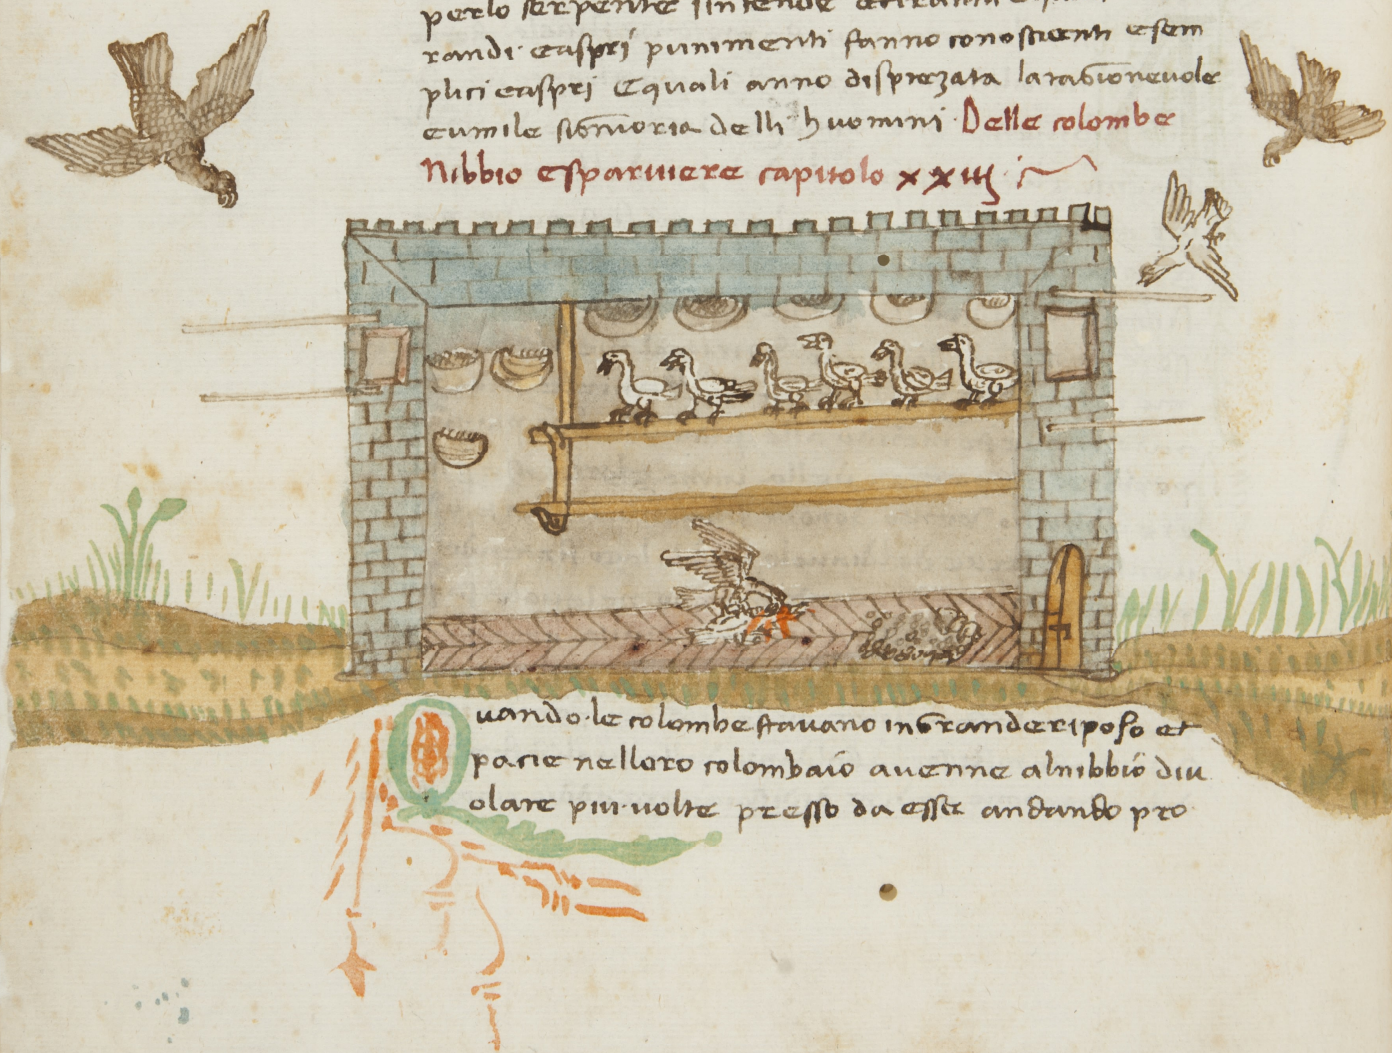 perlo serpente sintende
randi easpri punimenti fanno conoscienti esem
plici easpri Equali anno disprezata laragionevole
eumile signioria delli huomini Delle colombe
Nibbio esparuiere capitolo xxiij
Quando le colombe stauano ingranderiposo et
pacie nelloro colombaio auenne alnibbio diu
olare piu uolte presso da esse andando pro